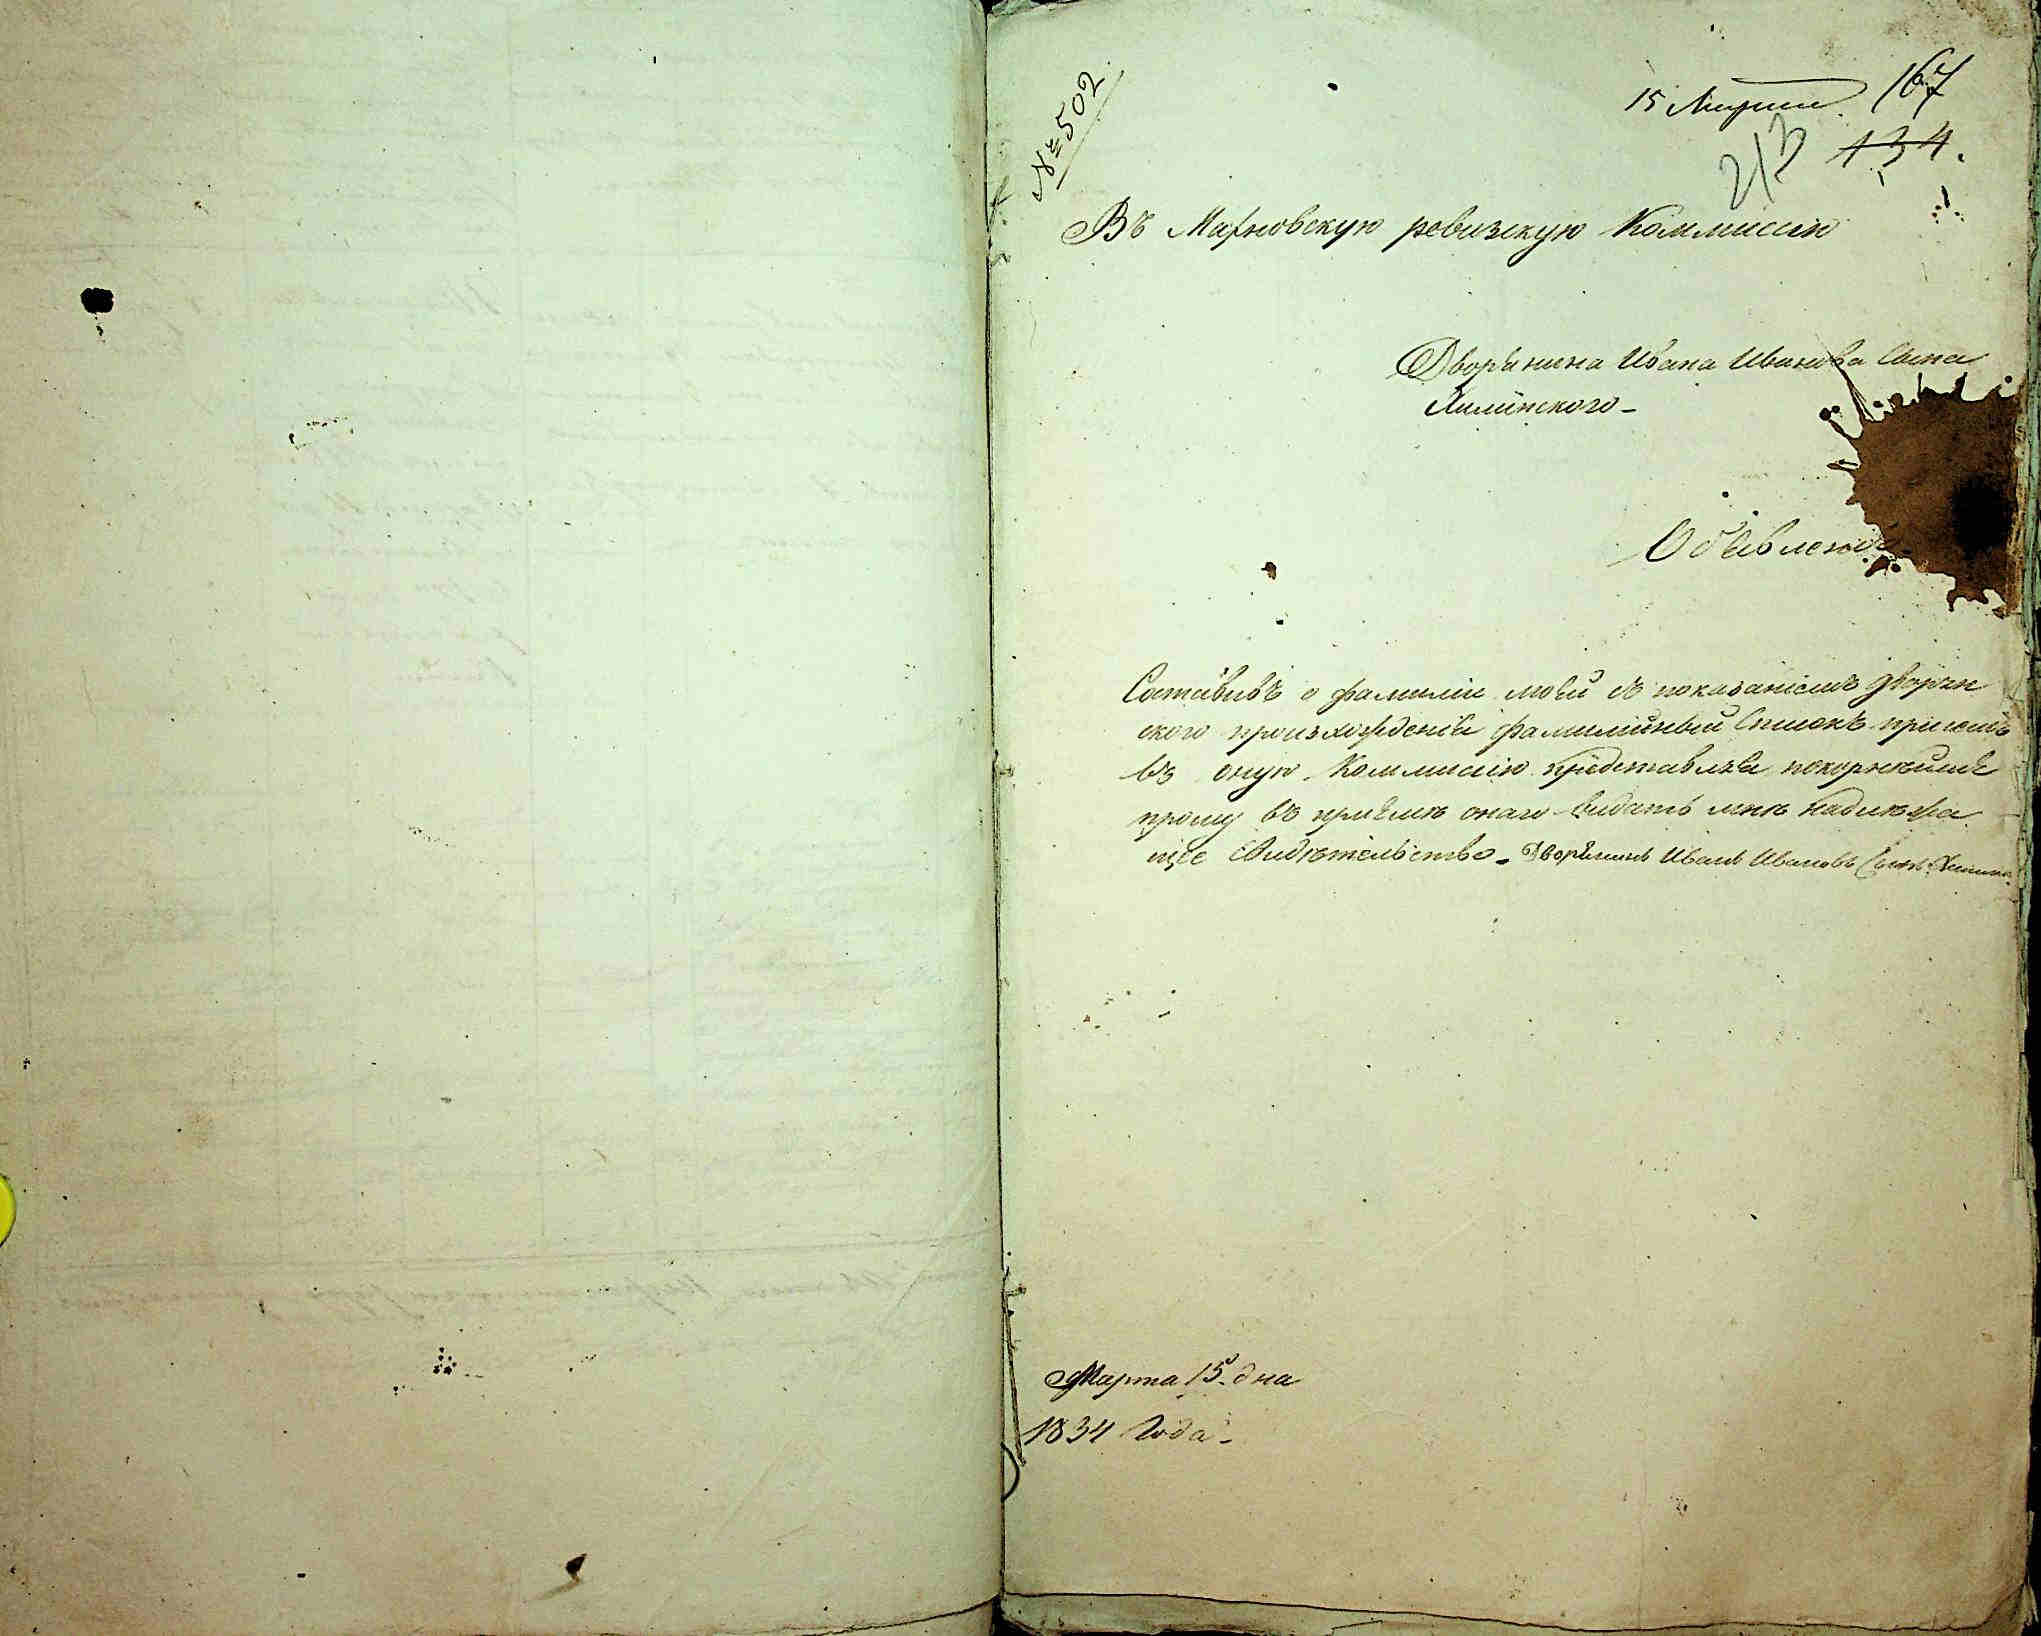 № 502
15 Марта 167
213 134.
Въ Махновскую ревизскую Коммисию
Дворянина Ивана Иванова Сына
Хилинского
Объявление
Составивъ о фамилии моей съ показаніемъ дворян
ского происхожденія фамилійный Списокъ при семъ
въ оную Коммисію представляя покорнейше
прошу въ приеме онаго выдать мне надлежа
щее свидетельство. Дворянинъ Иванъ Ивановъ Сынъ
Марта 15 дна
1834 Года